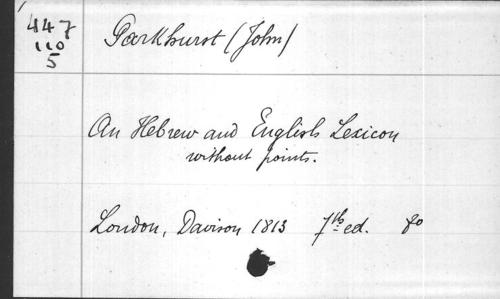 447
110
5
Parkhurst (John)
An Hebrew and English Lexicon
without points.
London, Davison 1813 7th ed. 8o